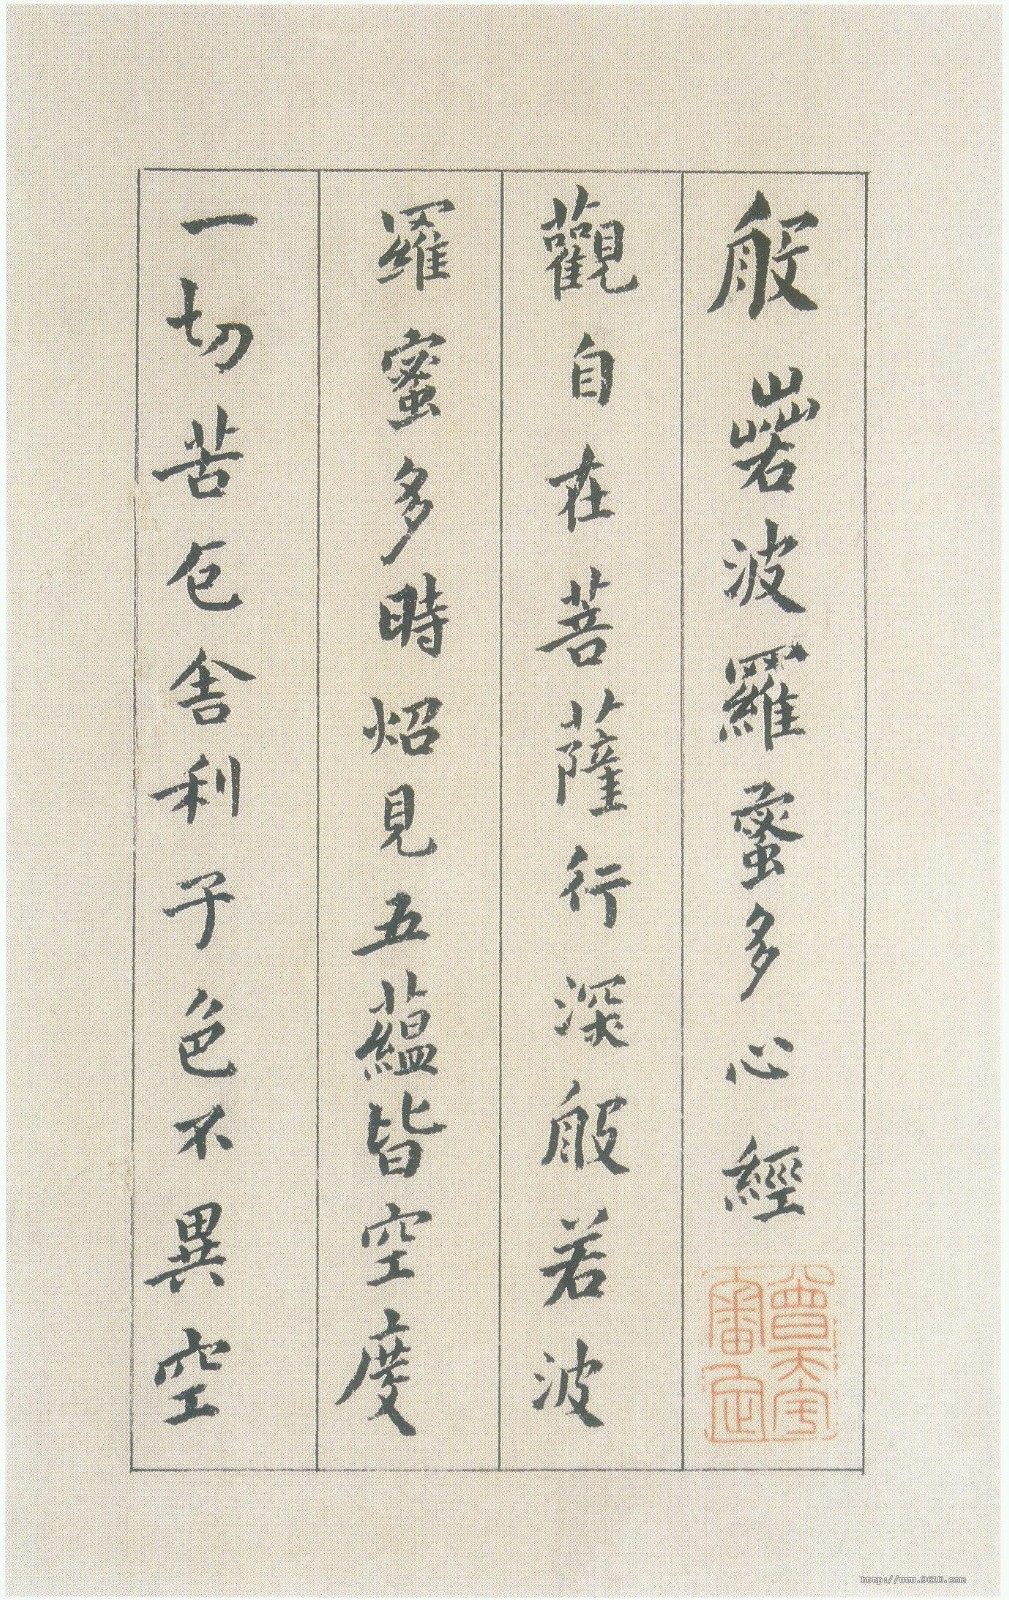 般若波羅蜜多心經
觀自在菩薩行深般若波
羅蜜多時炤見五蘊皆空度
一切苦厄舍利子色不異空
http://www.9610.com